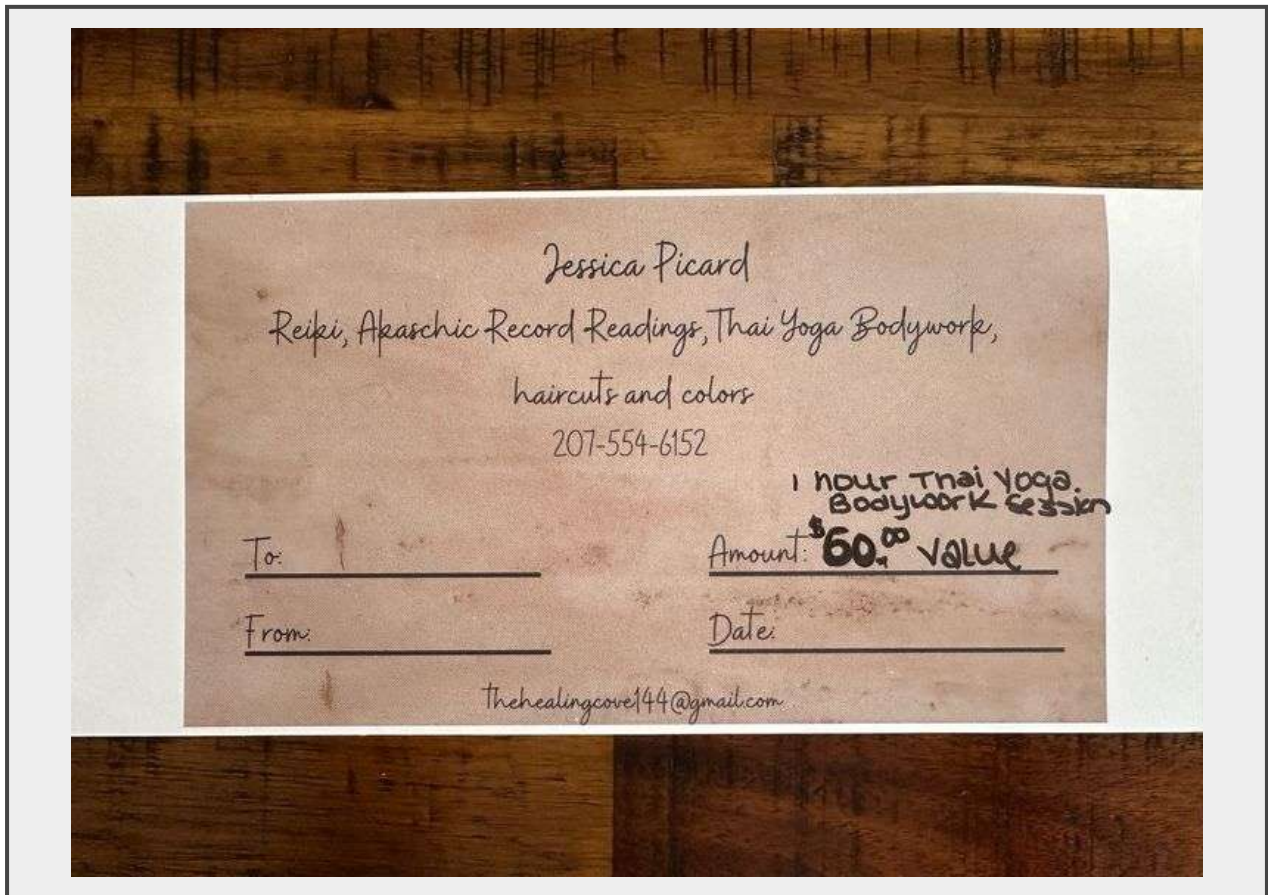 Jessica Picard
Reiki, Akaschic Record Readings, Thai Yoga Bodywork,
haircuts and colors
207-554-6152
1 hour Thai Yoga.
Bodywork Session
To:
Amount: $60.00 value
From:
Date:
thehealingcove144@gmail.com